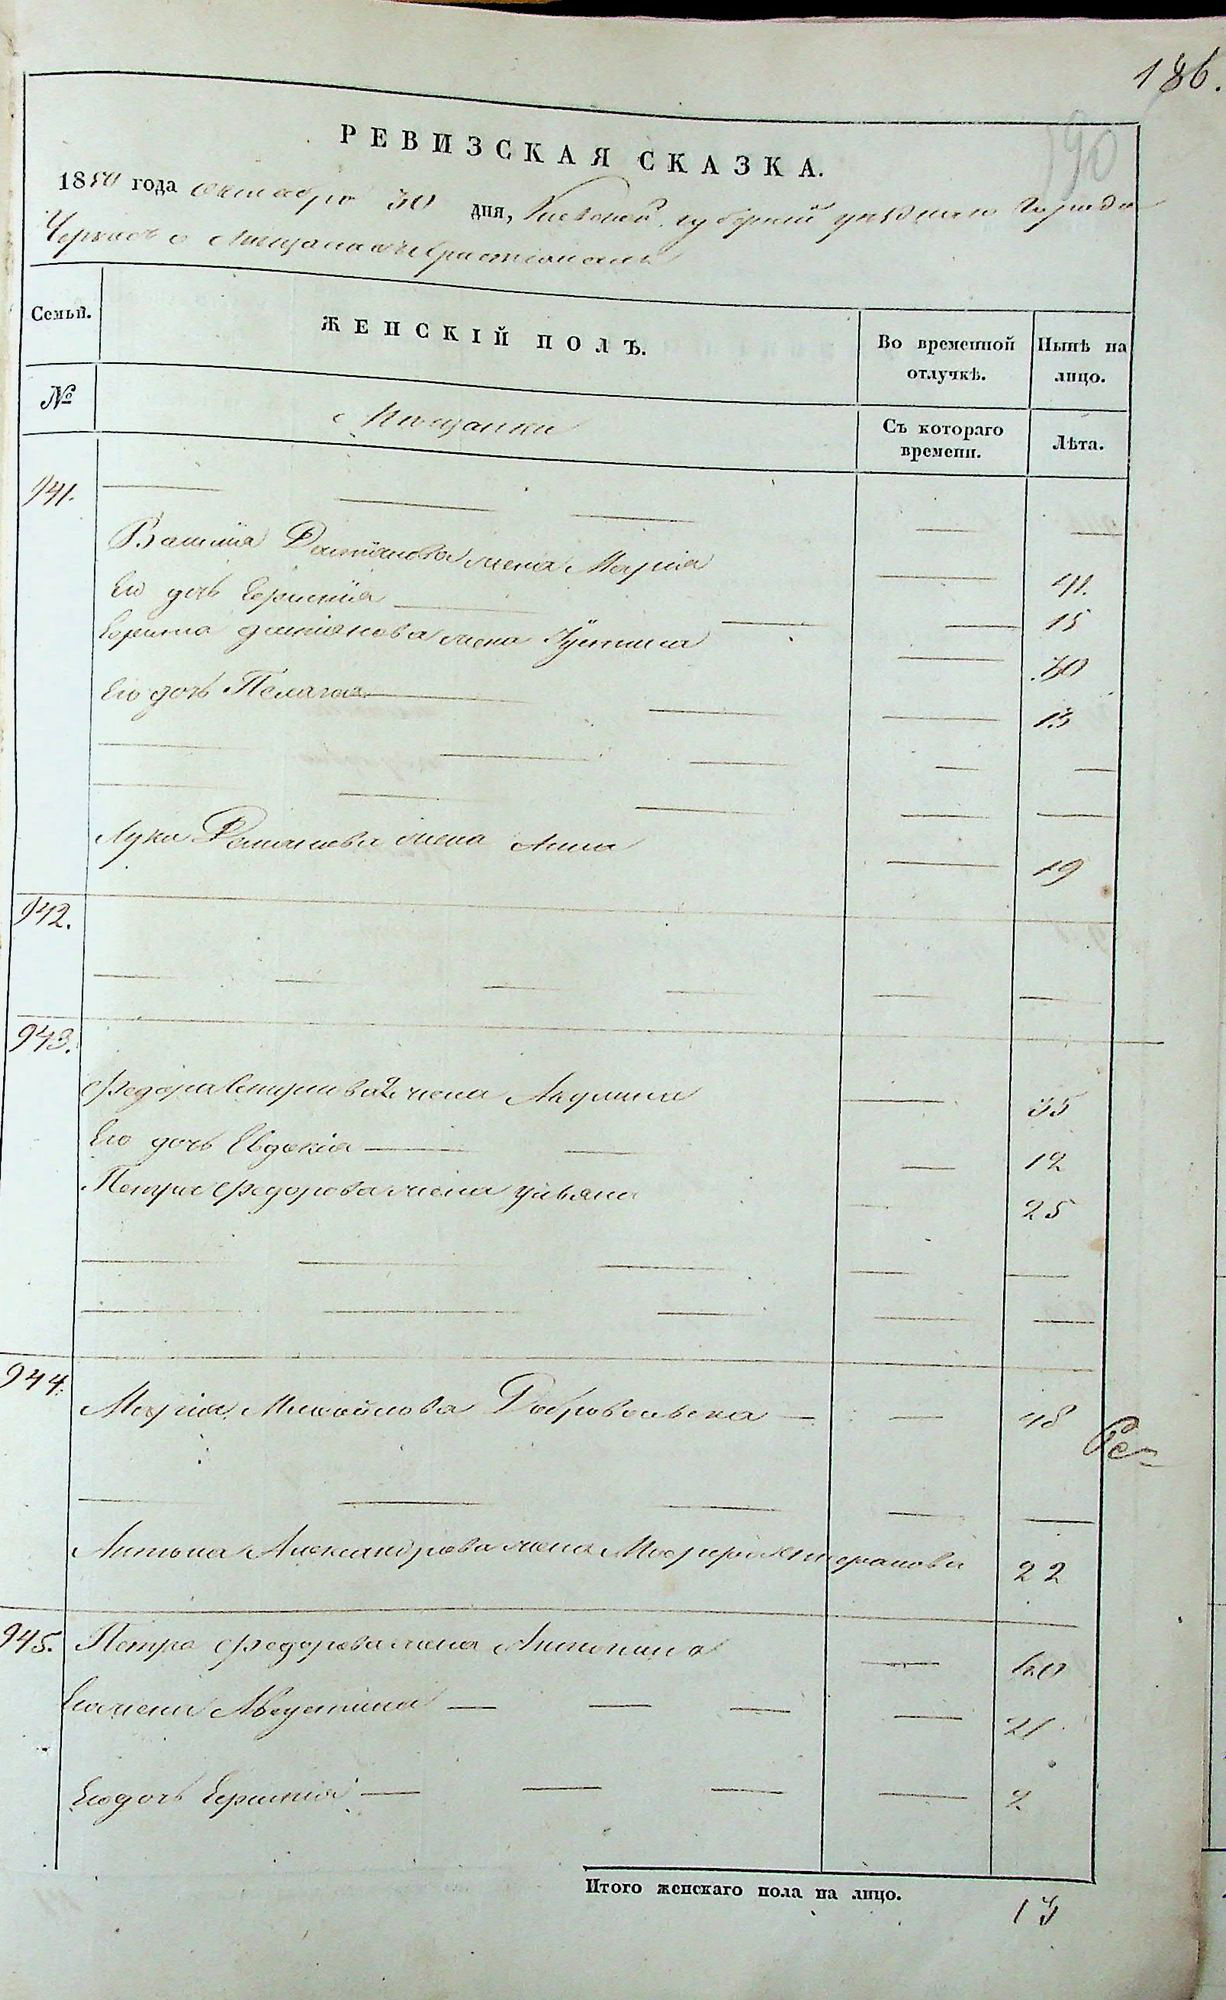 186.
190
РЕВИЗСКАЯ СКАЗКА.
1850 года октября 30 дня, Киевской губернии уезднаго города
Черкасъ о мещанахъ христіанахъ
Семьи.
ЖЕНСКІЙ ПОЛЪ.
Во временной отлучкѣ.
Нынѣ на лицо.
№
Мещанки
Съ котораго времени.
Лѣта.
941.
Демьянова жена Марія 41.
Его дочь Ефимія 15
Ефима Демьянова жена Устина 30
Его дочь Пелагея 13
Луки жена Анна 19
942.
943.
Федора жена Акулина 35
Его дочь Евдокія 12
Петра Федорова жена Ульяна 25
944.
Марія Михайлова Добровольска 48
Ре-
Антона Александрова жена 22
945. Петра Федорова жена Антонина
Его жена Августина 21
Его дочь Ефимія 2
Итого женскаго пола на лицо. 13